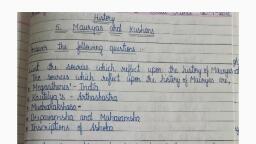 History
5. Mauryas and Kushans
Answer the following questions :-
List the sources which reflect upon the history of Mauryas
The sources which reflect upon the history of Mauryas are,
Megasthenes' - Indica
Kautilya's - Arthashastra
Mudrarakshasa -
Dipavamsha and Mahavamsha
Inscriptions of Ashoka